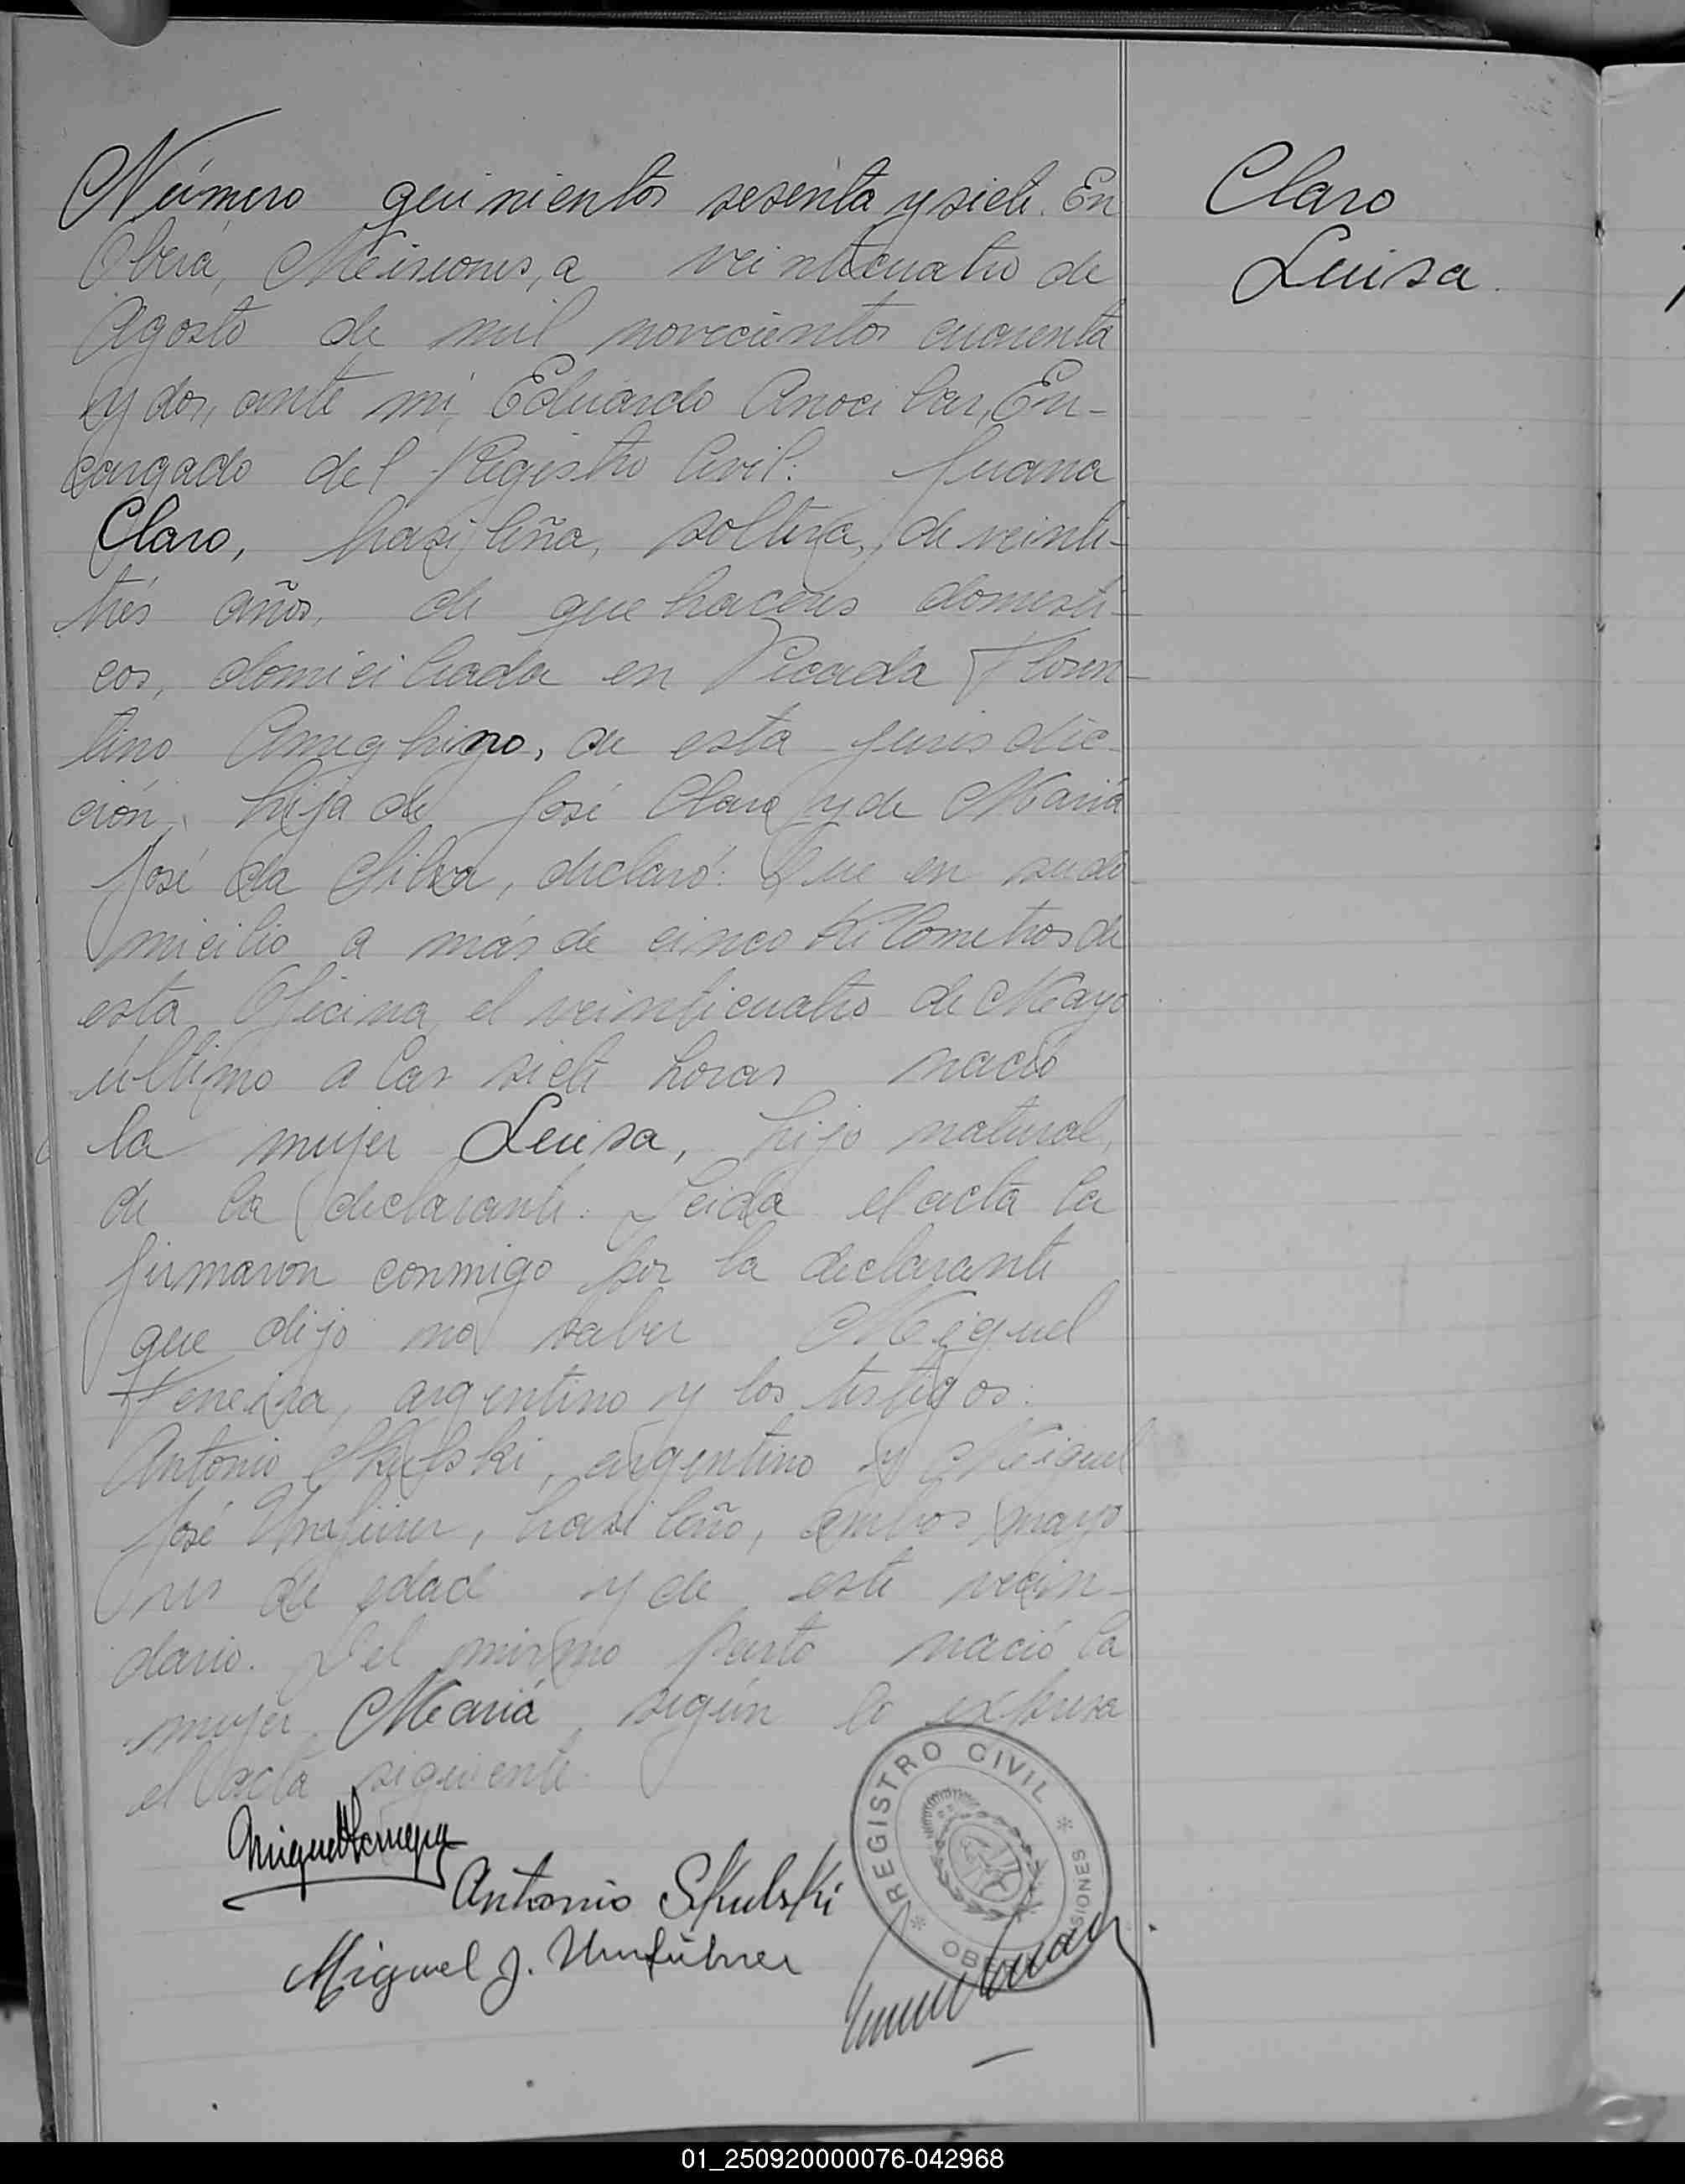 Número quinientos sesenta y siete. En
Oberá, Misiones, a veinticuatro de
Agosto de mil novecientos cuarenta
y dos, ante mi, Eduardo Anocibar, En-
cargado del Registro Civil: Juana
Claro, brasileña, soltera, de veinti-
trés años, de quehaceres domésti-
cos, domiciliada en Picada Floren-
tino Ameghino, de esta jurisdic-
ción, hija de José Claro y de María
José da Silva, declaró: Que en su do-
micilio a más de cinco kilometros de
esta Oficina, el veinticuatro de Mayo
último a las siete horas nació
la mujer Luisa, hijo natural,
de la declarante. Leida el acta la
firmaron conmigo por la declarante
que dijo no saber Miguel
argentino y los testigos:
Antonio Skulski, argentino y Miguel
José Umfürer, brasileño, ambos mayo-
res de edad y de este vecin-
dario. Del mismo parto nació la
mujer María según lo expresa
el acta siguiente.
Antonio Skulski
Miguel J. Umführer
Claro
Luisa.
REGISTRO CIVIL
OBERÁ MISIONES
01_250920000076-042968